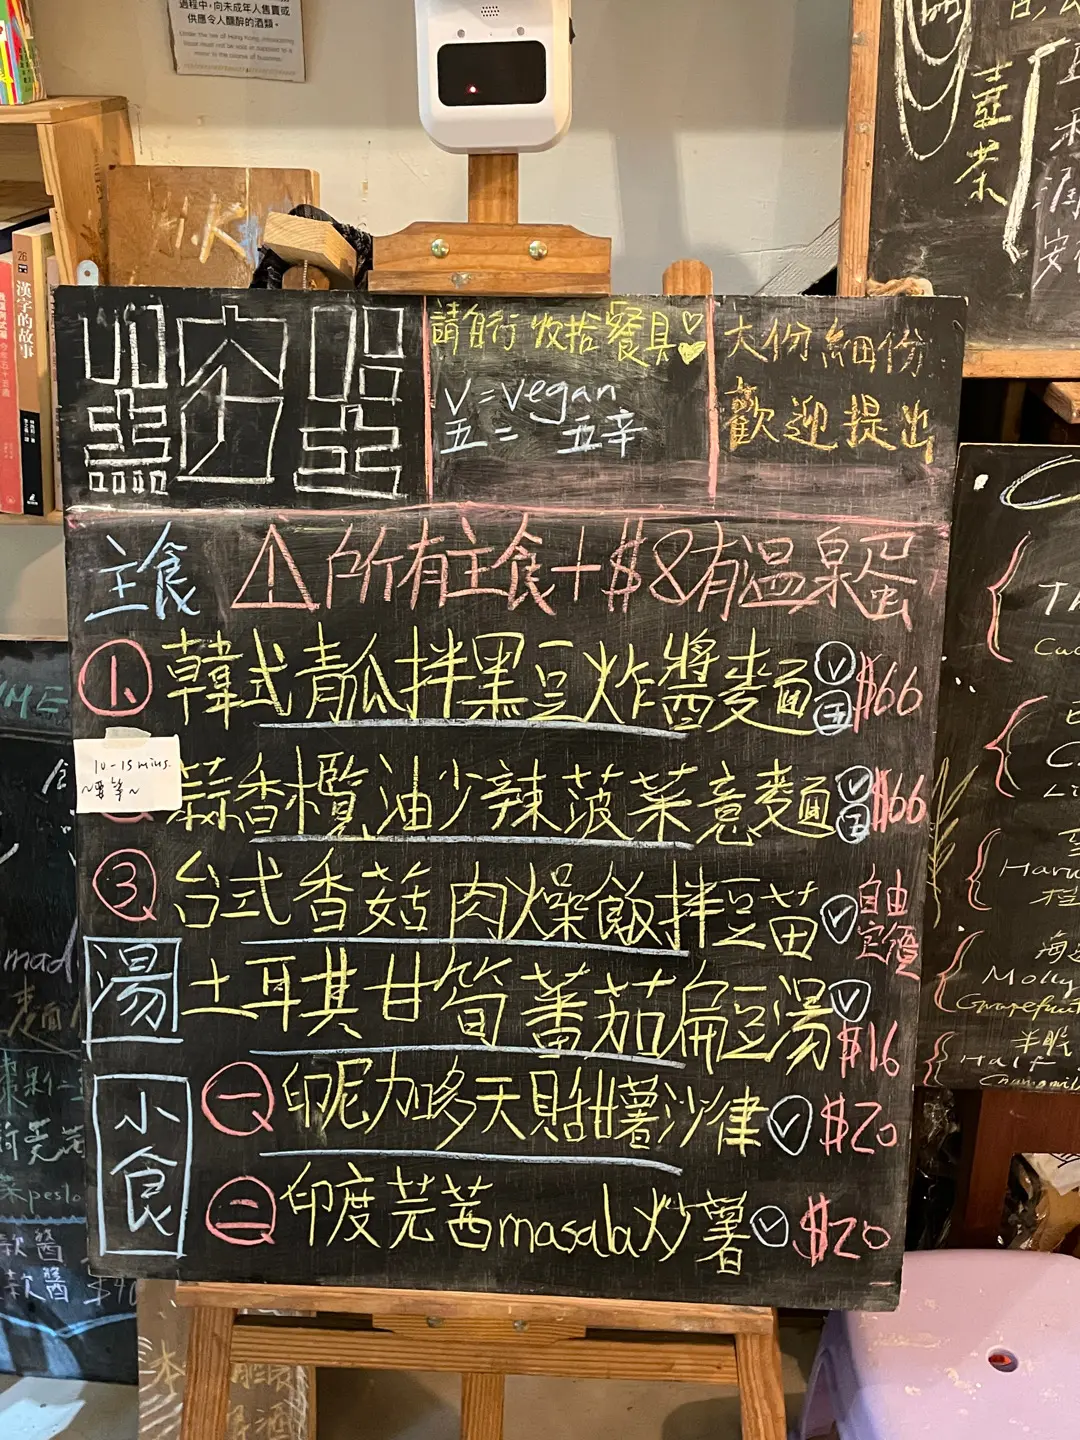 過程中，向未成年人售賣或
供應令人醺醉的酒類。
HK
26
漢字的故事
壺茶
請自行收拾餐具
V=Vegan
五=五辛
大份細份
歡迎提出
主食
所有主食+$8有溫泉蛋
1. 韓式青瓜拌黑豆炸醬麵 V 五 $66
10-15 mins.
~要等~
蒜香欖油少辣菠菜意麵 V 五 $66
3 台式香菇肉燥飯拌豆苗 V 自由定價
湯 土耳其甘筍蕃茄扁豆湯 V $16
小食
一 印尼加多天貝甜薯沙律 V $20
二 印度芫茜masala炒薯 V $20
Molly
Grapefruit
Half